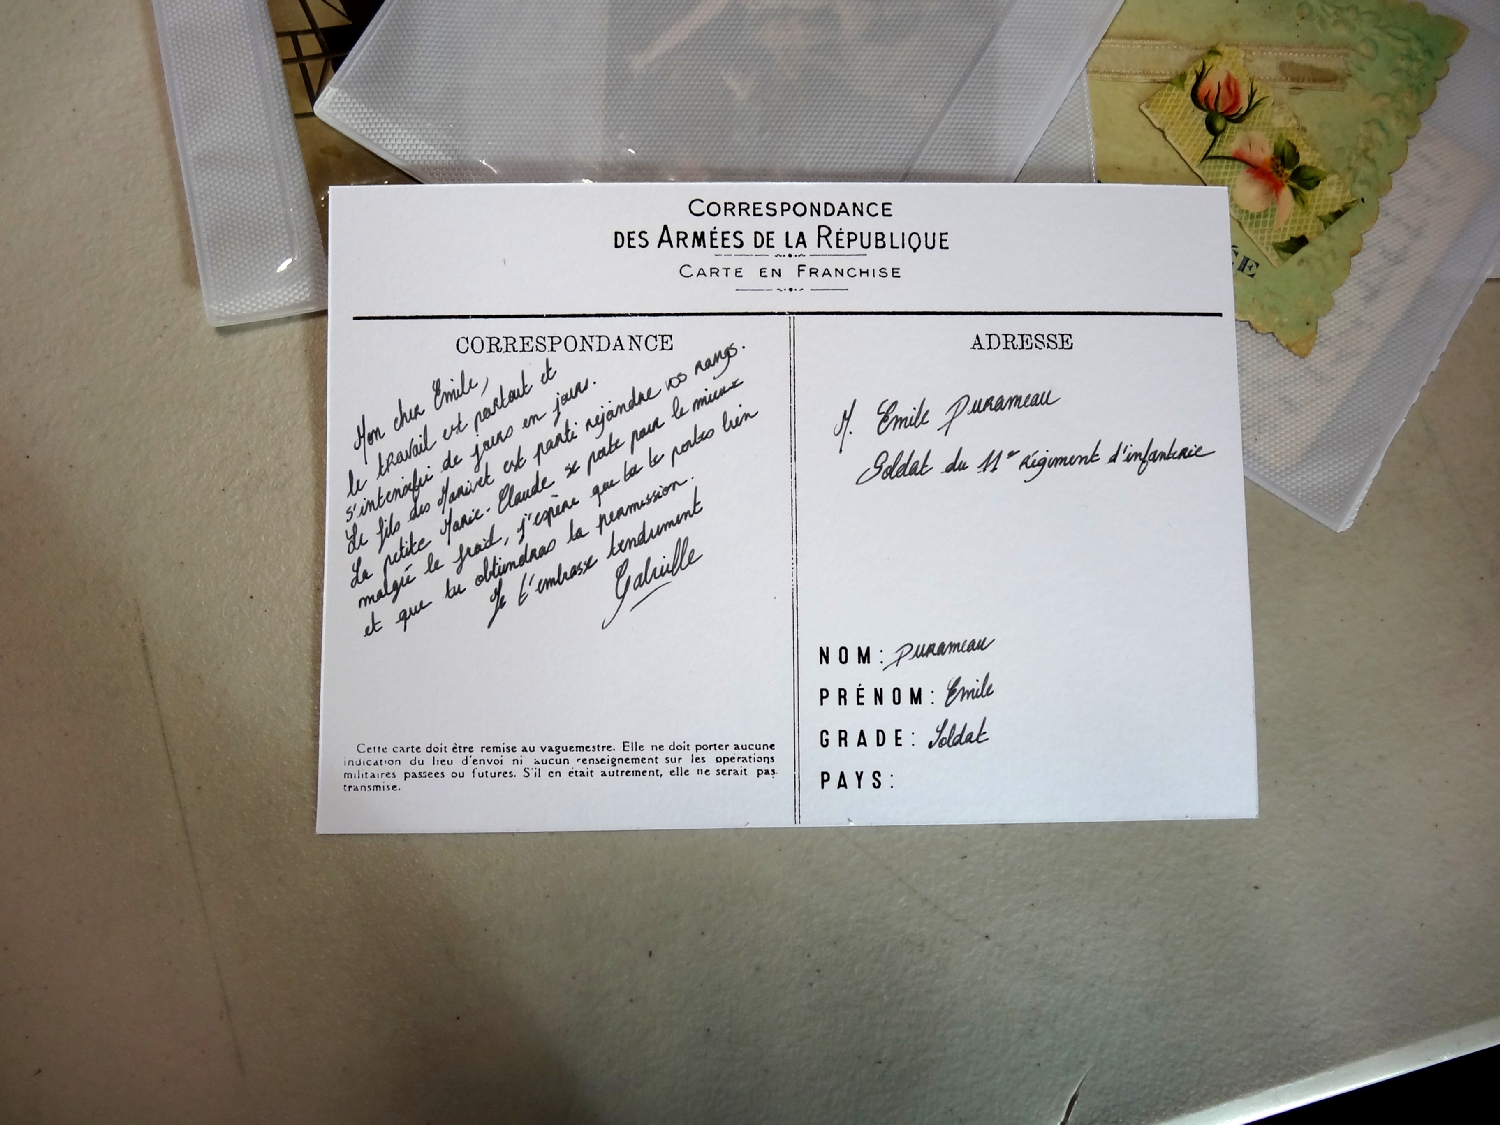 CORRESPONDANCE
DES ARMÉES DE LA RÉPUBLIQUE
CARTE EN FRANCHISE
CORRESPONDANCE
Mon cher Emile,
le travail est partout et
s'intensifie de jours en jours.
Le fils des Marivet est parti rejoindre vos rangs.
La petite Marie-Claude se porte pour le mieux
malgré le froid, j'espère que tu te portes bien
et que tu obtiendras la permission.
Je t'embrasse tendrement
Gabrielle
Cette carte doit être remise au vaguemestre. Elle ne doit porter aucune
indication du lieu d'envoi ni aucun renseignement sur les operations
militaires passees ou futures. S'il en était autrement, elle ne serait pas
transmise.
ADRESSE
M. Emile Durameau
Soldat du 11e régiment d'infanterie
NOM: Durameau
PRÉNOM: Emile
GRADE: Soldat
PAYS: